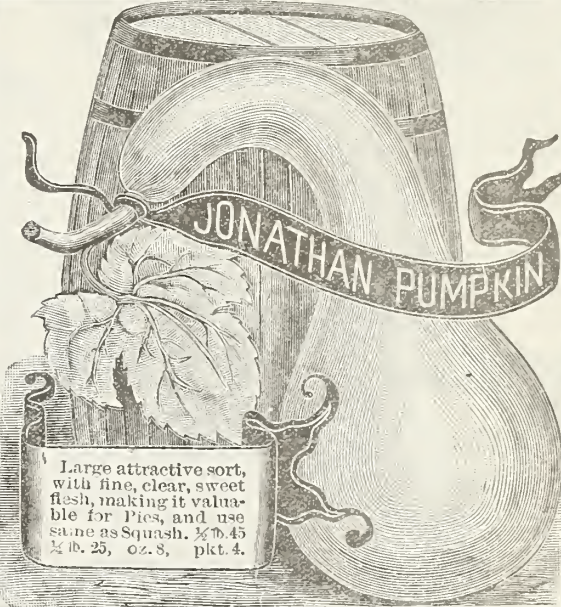 JONATHAN PUMPKIN
Large attractive sort,
with fine, clear, sweet
flesh, making it valua-
ble for Pies, and use
same as Squash. ½ lb. 45
¼ lb. 25, oz. 8, pkt. 4.